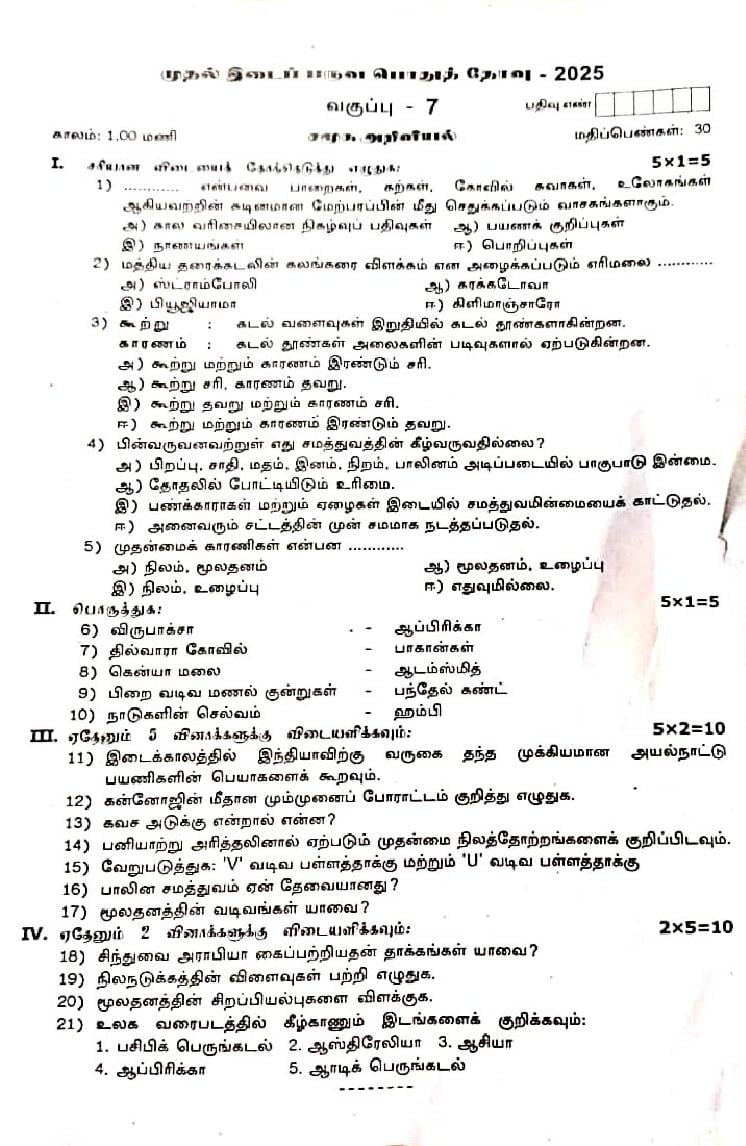 முதல் இடைப் பருவ பொதுத் தேர்வு - 2025
வகுப்பு - 7
பதிவு எண்
காலம்: 1.00 மணி சமூக அறிவியல் மதிப்பெண்கள்: 30
I. சரியான விடையைத் தேர்ந்தெடுத்து எழுதுக: 5×1=5
1) ............ என்பவை பாறைகள், கற்கள், கோவில் சுவர்கள், உலோகங்கள்
ஆகியவற்றின் கடினமான மேற்பரப்பின் மீது செதுக்கப்படும் வாசகங்களாகும்.
அ) கால வரிசையிலான நிகழ்வுப் பதிவுகள் ஆ) பயணக் குறிப்புகள்
இ) நாணயங்கள் ஈ) பொறிப்புகள்
2) மத்திய தரைக்கடலின் கலங்கரை விளக்கம் என அழைக்கப்படும் எரிமலை ............
அ) ஸ்ட்ராம்போலி ஆ) கரக்கடோவா
இ) பியூஜியாமா ஈ) கிளிமாஞ்சாரோ
3) கூற்று : கடல் வளைவுகள் இறுதியில் கடல் தூண்களாகின்றன.
காரணம் : கடல் தூண்கள் அலைகளின் படிவுகளால் ஏற்படுகின்றன.
அ) கூற்று மற்றும் காரணம் இரண்டும் சரி.
ஆ) கூற்று சரி, காரணம் தவறு.
இ) கூற்று தவறு மற்றும் காரணம் சரி.
ஈ) கூற்று மற்றும் காரணம் இரண்டும் தவறு.
4) பின்வருவனவற்றுள் எது சமத்துவத்தின் கீழ்வருவதில்லை?
அ) பிறப்பு, சாதி, மதம், இனம், நிறம், பாலினம் அடிப்படையில் பாகுபாடு இன்மை.
ஆ) தேர்தலில் போட்டியிடும் உரிமை.
இ) பணக்காரர்கள் மற்றும் ஏழைகள் இடையில் சமத்துவமின்மையைக் காட்டுதல்.
ஈ) அனைவரும் சட்டத்தின் முன் சமமாக நடத்தப்படுதல்.
5) முதன்மைக் காரணிகள் என்பன ............
அ) நிலம், மூலதனம் ஆ) மூலதனம், உழைப்பு
இ) நிலம், உழைப்பு ஈ) எதுவுமில்லை.
II. பொருத்துக: 5×1=5
6) விருபாக்சா - ஆப்பிரிக்கா
7) தில்வாரா கோவில் - பர்கான்கள்
8) கென்யா மலை - ஆடம்ஸ்மித்
9) பிறை வடிவ மணல் குன்றுகள் - பந்தேல் கண்ட்
10) நாடுகளின் செல்வம் - ஹம்பி
III. ஏதேனும் 5 வினாக்களுக்கு விடையளிக்கவும்: 5×2=10
11) இடைக்காலத்தில் இந்தியாவிற்கு வருகை தந்த முக்கியமான அயல்நாட்டு
பயணிகளின் பெயர்களைக் கூறவும்.
12) கன்னோஜின் மீதான மும்முனைப் போராட்டம் குறித்து எழுதுக.
13) கவச அடுக்கு என்றால் என்ன?
14) பனியாற்று அரித்தலினால் ஏற்படும் முதன்மை நிலத்தோற்றங்களைக் குறிப்பிடவும்.
15) வேறுபடுத்துக: 'V' வடிவ பள்ளத்தாக்கு மற்றும் 'U' வடிவ பள்ளத்தாக்கு
16) பாலின சமத்துவம் ஏன் தேவையானது?
17) மூலதனத்தின் வடிவங்கள் யாவை?
IV. ஏதேனும் 2 வினாக்களுக்கு விடையளிக்கவும்: 2×5=10
18) சிந்துவை அராபியர் கைப்பற்றியதன் தாக்கங்கள் யாவை?
19) நிலநடுக்கத்தின் விளைவுகள் பற்றி எழுதுக.
20) மூலதனத்தின் சிறப்பியல்புகளை விளக்குக.
21) உலக வரைபடத்தில் கீழ்காணும் இடங்களைக் குறிக்கவும்:
1. பசிபிக் பெருங்கடல் 2. ஆஸ்திரேலியா 3. ஆசியா
4. ஆப்பிரிக்கா 5. ஆர்டிக் பெருங்கடல்
---------